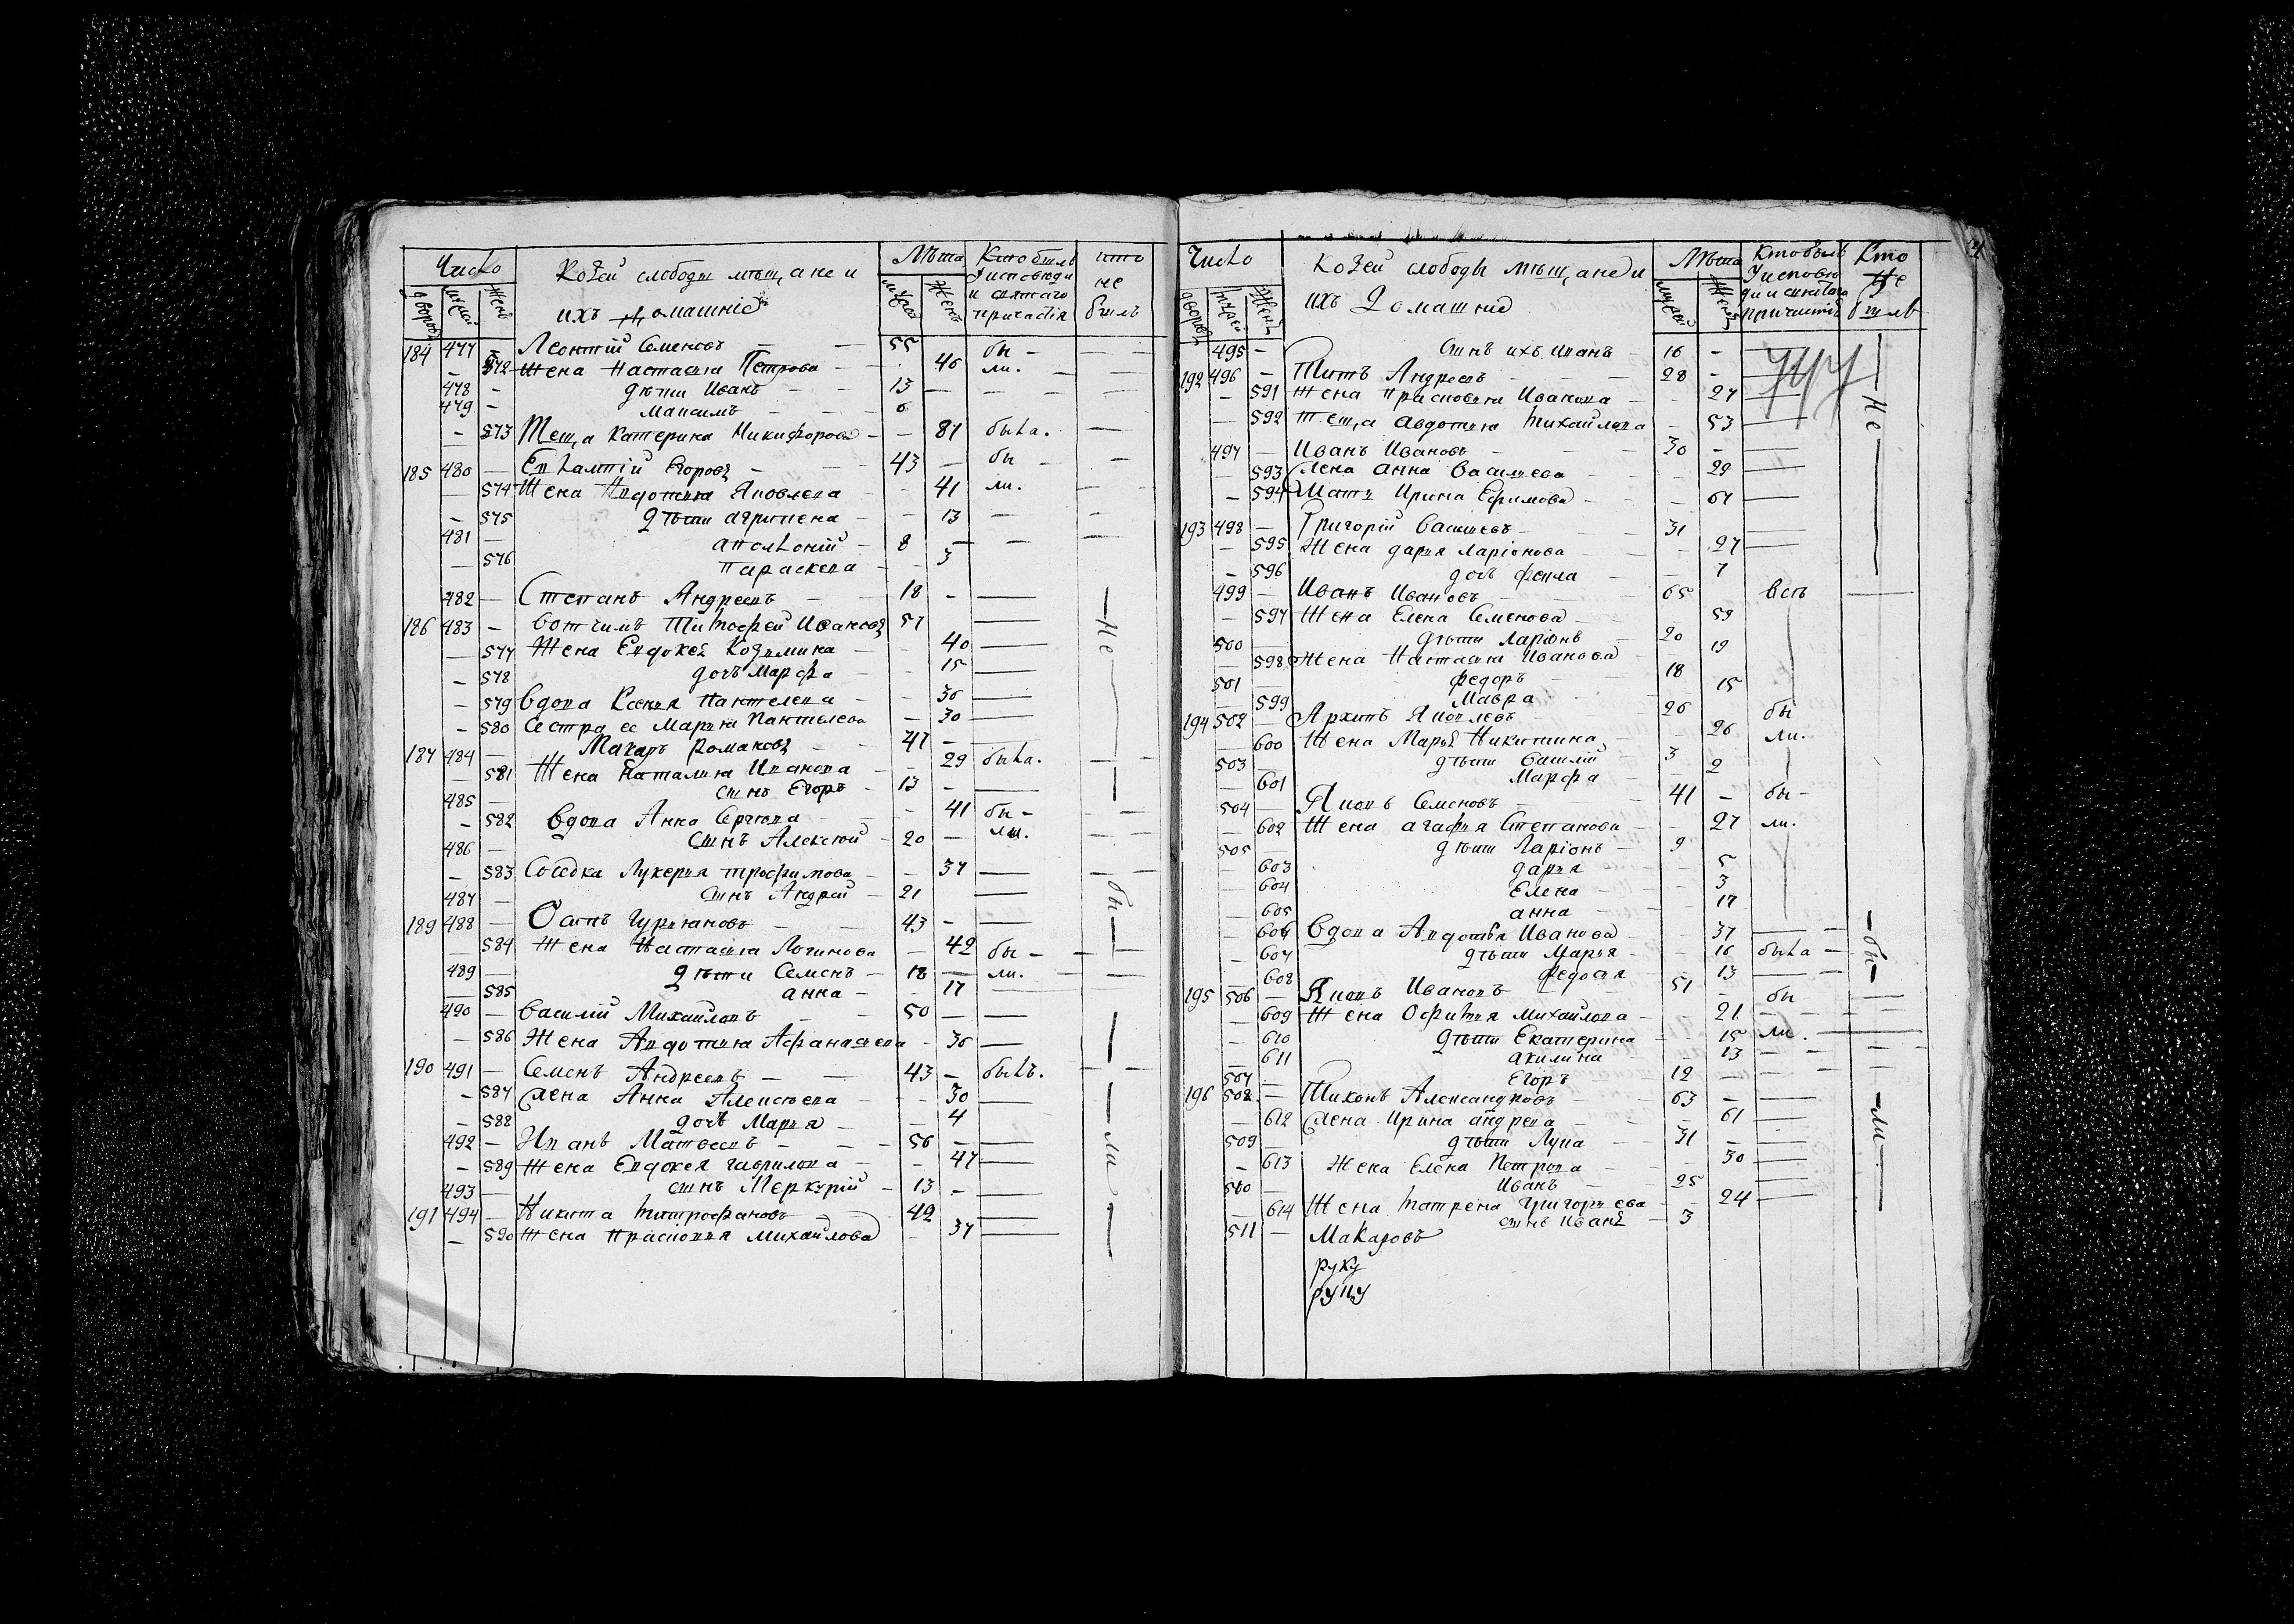 Число
Козей слободы мѣщане и
ихъ домашніе
Лѣта
Кто былъ
у исповѣди
и святаго
причастія
кто
не
былъ
дворовъ
мужей
женъ
мужей
женъ
184 477 - Леонтій Семеновъ - - 55 бы -
- 572 Жена Настасья Петрова - - 46 ли.
478 - дѣти Иванъ - 13 -
479 - Максимъ - - - 6
- 573 Теща Катерина Никифорова - - 81 была.
185 480 - Евлампій Егоровъ - - 43 - бы
- 574 Жена Авдотья Яковлева - 41 ли.
- 575 дѣти Агрипена - - 13 -
481 - Аполоній - 8 -
- 576 Параскева - - 3
482 - Степанъ Андреевъ - 18 -
186 483 - Вотчимъ Тимофей Ивановъ 57
- 577 Жена Евдокея Кодзмина - - 40
- 578 дочь Марфа - - 15
- 579 Вдова Ксенья Пантелева - - 36
- 580 Сестра ее Марья Пантелева - 30
187 484 - Макаръ Романовъ - - 47 -
- 581 Жена Наталья Иванова - - 29 была.
485 - сынъ Егоръ - 13 -
- 582 Вдова Анна Сергѣева - - 41 бы -
486 - сынъ Алексѣй - 20 - ли.
- 583 Соседка Лукерья Трофимова - - 37
487 - сынъ Андрей - 21
189 488 - Осипъ Гурьяновъ - - 43 -
- 584 Жена Настасья Логинова - 42 бы -
489 - дѣти Семенъ - 18 - ли.
- 585 анна - 17
490 - Василій Михайловъ - - 50 -
- 586 Жена Авдотья Афанасьева - 36
190 491 - Семенъ Андреевъ - - 43 - былъ.
- 587 Жена Анна Алексѣева - - 30
- 588 дочь Марья - - 4
492 - Иванъ Матвеевъ - - 56 -
- 589 Жена Евдокея Гаврилова - - 47
493 - сынъ Меркурій - 13 -
191 494 - Никита Митрофановъ - 42
- 590 Жена Прасковья Михайлова - 37
- не -
- бы -
- ли -
Число
Козей слободы мѣщане и
ихъ домашніе
Лѣта
Кто былъ
у испове
ди и святаго
причастія
Кто
не
былъ
дворовъ
мужей
женъ
мужей
женъ
495 - сынъ ихъ иванъ - 16 -
192 496 - Титъ Андреевъ - - - 28 -
- 591 Жена Прасковья Иванова - - 27
- 592 Теща Авдотья Михайлова - 53
497 - Иванъ Ивановъ - - - 30 -
- 593 Жена Анна Васильева - - 29
- 594 Мать Ирина Ефимова - - 67
193 498 - Григорій Васильевъ - - 31
- 595 Жена дарья Ларіонова - - 27
- 596 дочь Фекла - - 7
499 - Иванъ Ивановъ - 65 Всѣ
- 597 Жена Елена Семенова - - 59
500 - дѣти Ларіонъ - 20
- 598 Жена Настасья Иванова - 19
501 - Федоръ - 18
- 599 Мавра - - 15
194 502 - Архипъ Яковлевъ - 26 бы
- 600 Жена Марья Никитина - - 26 ли.
503 - дѣти Василій 3
- 601 Марфа - - 2
504 - Яковъ Семеновъ - - 41 - бы -
- 602 Жена агафья Степанова - - 27 ли.
505 - дѣти Ларіонъ - 9
- 603 дарья - - 5
- 604 Елена - - 3
- 605 анна - - 17
- 606 Вдова Авдотья Иванова - 37
- 607 дѣти Марья - - 16 была -
- 608 Федосья - - 13
195 506 - Яковъ Ивановъ - - 51 - бы
- 609 Жена Офимья Михайлова - - 21
- 610 дѣти Екатерина - - 15 ли.
- 611 акилина - 13
507 - Егоръ - 12 -
196 508 - Тихонъ Александровъ - 63 -
- 612 Жена Ирина андреева - - 61
509 - дѣти Лука - - 31 -
- 613 Жена Елена Петрова - - 30
510 - Иванъ - 25
- 614 Жена Матрена Григорьева - - 24
511 - сынъ Иванъ - 3
- не -
- бы -
- ли -
Макаровъ
руку
руку